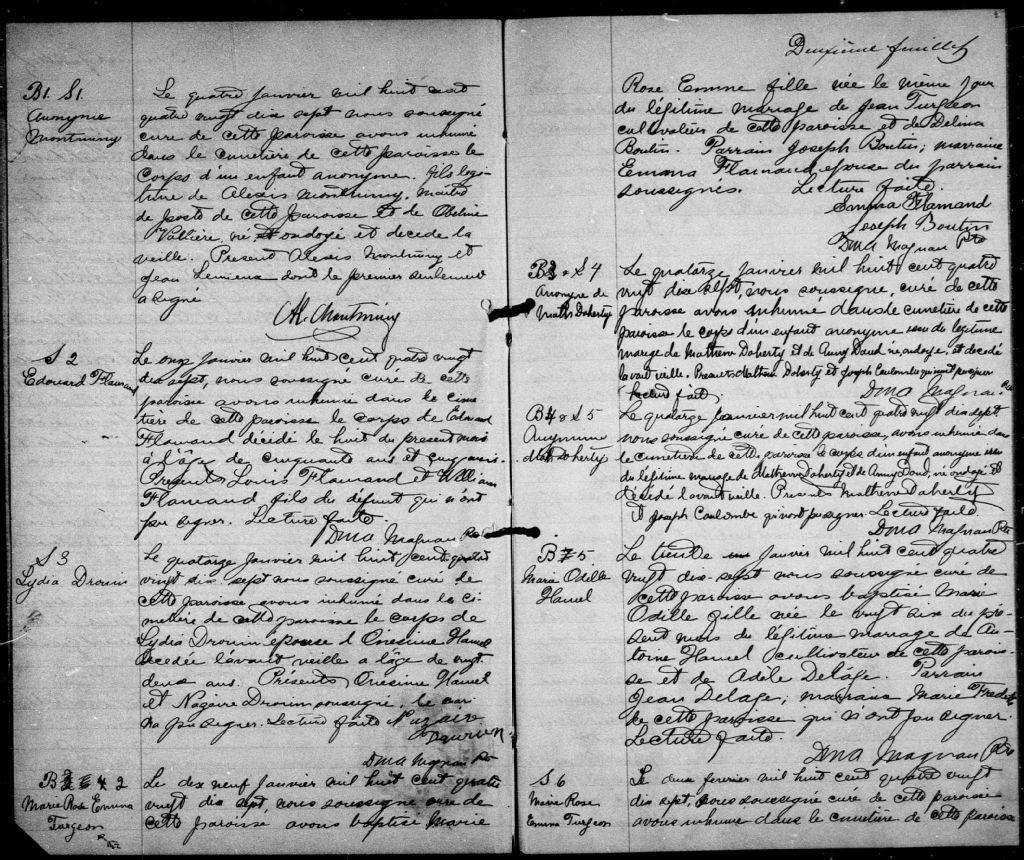 B1. S1.
Anonyme
Montminy
Le quatre janvier mil huit cent
quatre vingt dix sept nous soussigné
curé de cette paroisse avons inhumé
dans le cimetière de cette paroisse le
corps d'un enfant anonyme. fils légi-
time de Alexis Montminy, maître
de poste de cette paroisse et de Obeline
Vallière, né et ondoyé et decedé la
veille. Present Alexis Montminy et
Jean Lemieux dont le premier seulement
a signé
Al. Montminy
S 2
Edouard Flamand
Le onze janvier mil huit cent quatre vingt
dix sept, nous soussigné curé de cette
paroisse avons inhumé dans le cime
tière de cette paroisse le corps de Edouard
Flamand décédé le huit du present mois
à l'âge de cinquante ans et cinq mois.
Presents Louis Flamand et William
Flamand fils du défunt qui n'ont
pu signer. Lecture faite.
DMA Magnan Ptre
S 3
Lydia Drouin
Le quatorze janvier mil huit cent quatre
vingt dix-sept nous soussigné curé de
cette paroisse avons inhumé dans le ci-
metière de cette paroisse le corps de
Lydia Drouin epouse d'Onesime Hamel
decedée l'avant veille a l'âge de vingt
deux ans. Présents Onesime Hamel
et Nazaire Drouin soussigné, le
n'a pu signer. Lecture faite Nazaire
Drouin
DMA Magnan Ptre
B 2
Marie Rose Emma
Turgeon
Le dix neuf janvier mil huit cent quatre
vingt dix sept nous soussigné curé de
cette paroisse avons baptisé Marie
2
Deuxième feuillet
Rose Emma fille née le même jour
du légitime mariage de Jean Turgeon
cultivateur de cette paroisse et de Delina
Boutin. Parrain Joseph Boutin; marraine
Emma Flamand, epouse du parrain
soussignés. Lecture faite.
Emma Flamand
Joseph Boutin
DMA Magnan Ptre
B3 & S4
Anonyme de
Math. Doherty
Le quatorze janvier mil huit cent quatre
vingt dix sept, nous soussigné, curé de cette
paroisse avons inhumé dans le cimetière de cette
paroisse le corps d'un enfant anonyme issu du légitime
mariage de Mathew Doherty et de Anny Daud né, ondoyé, et decedé
l'avant veille. Presents Mathew Doherty et Joseph Coulombe qui n'ont pu signer
Lecture faite.
DMA Magnan Ptre
B4 & S5
Anonyme
Mat. Doherty
Le quatorze janvier mil huit cent quatre vingt dix sept
nous soussigné curé de cette paroisse, avons inhumé dans
le cimetière de cette paroisse le corps d'un enfant anonyme issu
du légitime mariage de Mathew Doherty et de Anny Daud, né ondoyé et
décédé l'avant veille. Presents Mathew Doherty
et Joseph Coulombe qui n'ont pu signer. Lecture faite.
DMA Magnan Ptre
B 5
Marie Odille
Hamel
Le trente janvier mil huit cent quatre
vingt dix-sept nous soussigné curé de
cette paroisse avons baptisé Marie
Odille fille née le vingt six du pré-
sent mois de légitime mariage de An-
toine Hamel cultivateur de cette parois-
se et de Adèle Delâge. Parrain
Jean Delage; marraine Marie
de cette paroisse qui n'ont pu signer.
Lecture faite.
DMA Magnan Ptre
S 6
Marie Rose
Emma Turgeon
Le deux fevrier mil huit cent quatre vingt
dix sept, nous soussigné curé de cette paroisse
avons inhumé dans le cimetière de cette paroisse